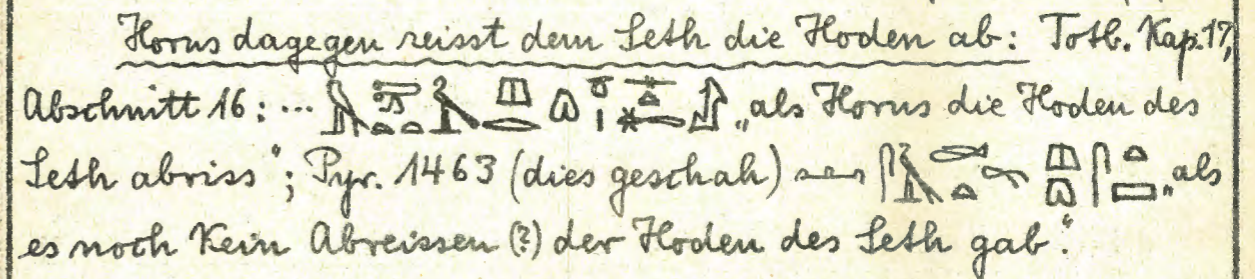 Horus dagegen reisst dem Seth die Hoden ab: Totb. Kap. 17,
Abschnitt 16: ... „als Horus die Hoden des
Seth abriss"; Pyr. 1463 (dies geschah) „als
es noch kein Abreissen (?) der Hoden des Seth gab".